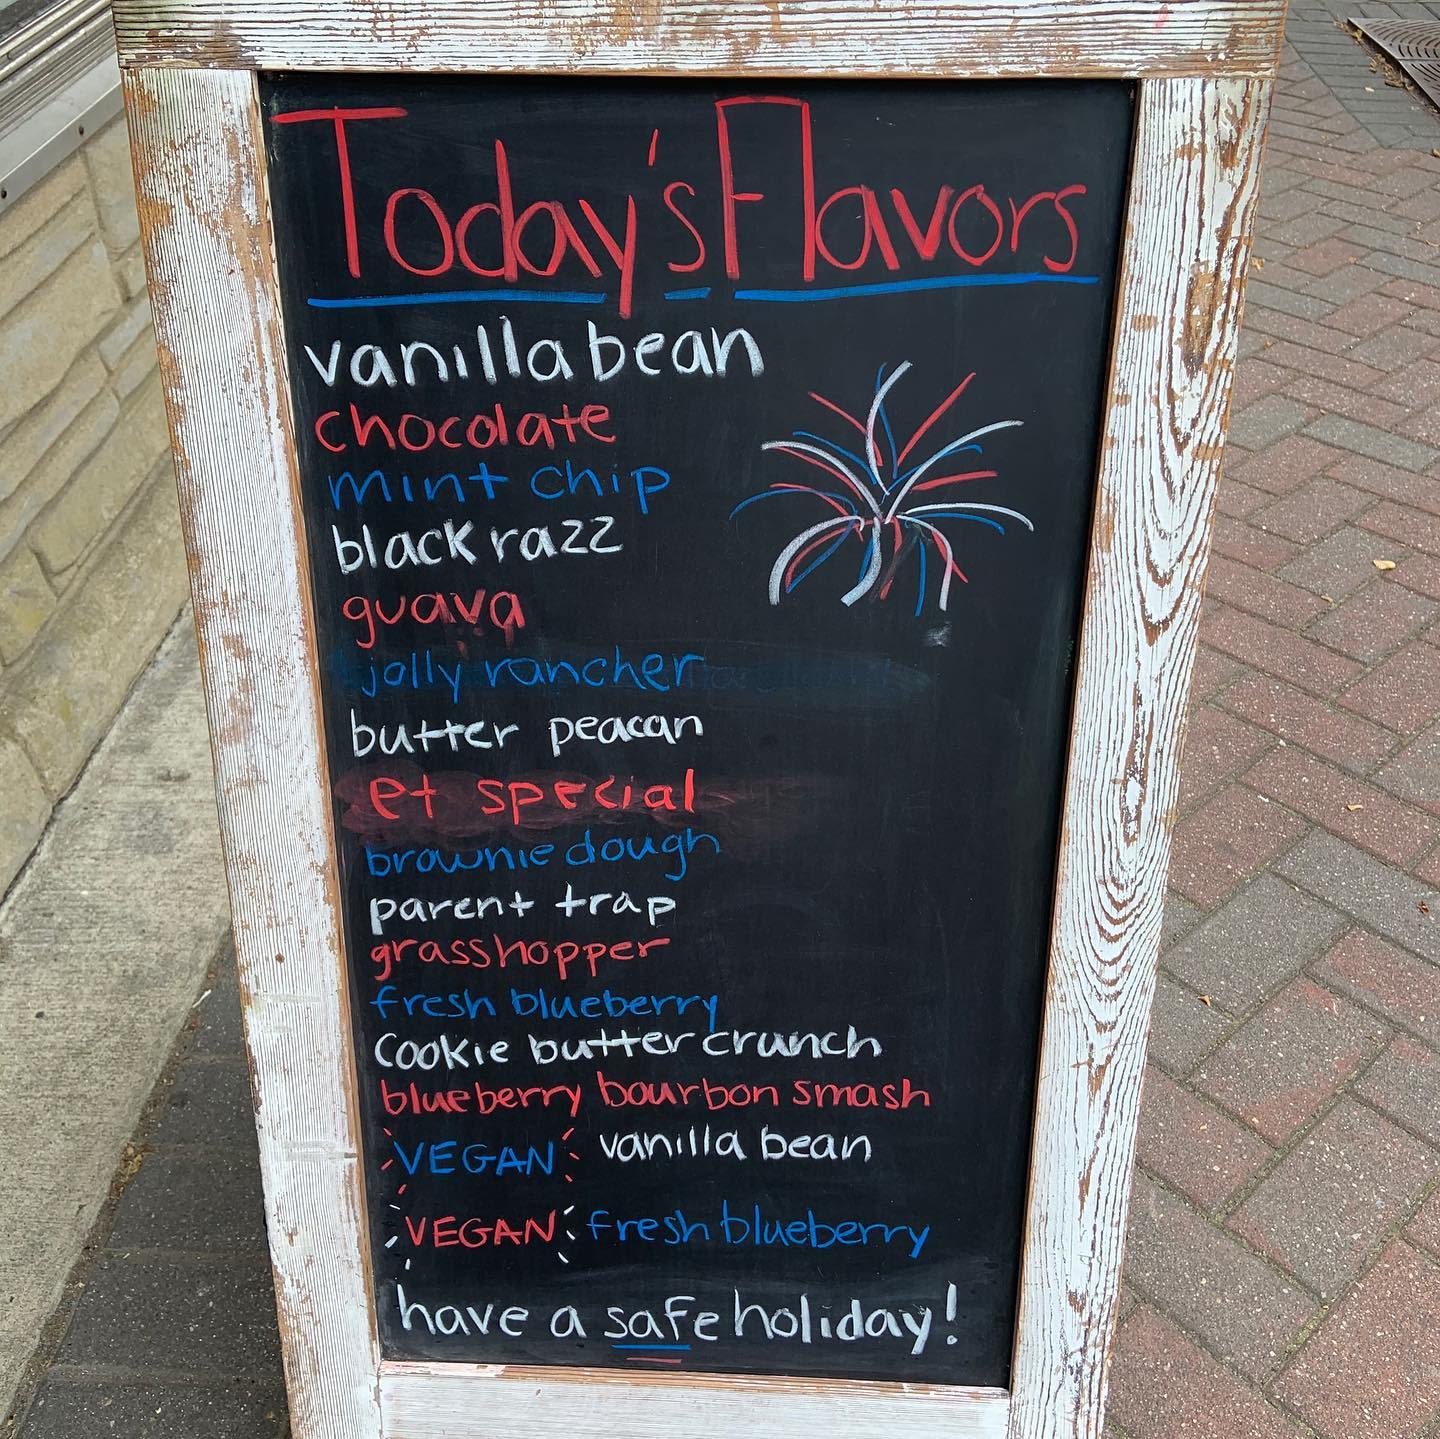 Today's Flavors
vanilla bean
chocolate
mint chip
black razz
guava
jolly rancher
butter peacan
et special
brownie dough
parent trap
grasshopper
fresh blueberry
Cookie butter crunch
blueberry bourbon smash
VEGAN vanilla bean
VEGAN fresh blueberry
have a safe holiday!